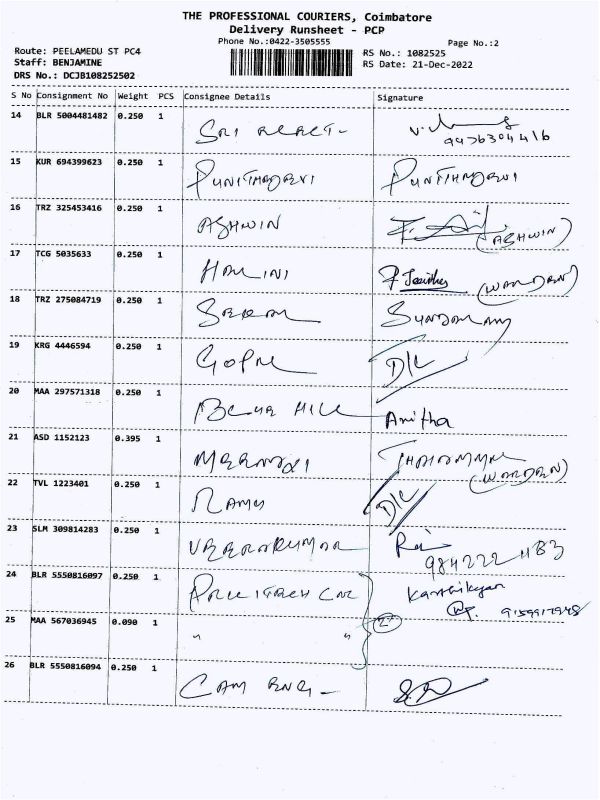 THE PROFESSIONAL COURIERS, Coimbatore
Delivery Runsheet - PCP
Phone No.:0422-3505555
Page No.:2
Route: PEELAMEDU ST PC4
RS No.: 1082525
Staff: BENJAMINE
RS Date: 21-Dec-2022
DRS No.: DCJB108252502
S No Consignment No Weight PCS Consignee Details Signature
14 BLR 5004481482 0.250 1 SRI
15 KUR 694399623 0.250 1 PUNITHADEVI PUNITHADEVI
16 TRZ 325453416 0.250 1 ASHWIN (ASHWIN)
17 TCG 5035633 0.250 1 (WARDEN)
18 TRZ 275084719 0.250 1
19 KRG 4446594 0.250 1 GOPAL D/L
20 MAA 297571318 0.250 1 BLUE HILL Anitha
21 ASD 1152123 0.395 1 (WARDEN)
22 TVL 1223401 0.250 1 RAMU D/L
23 SLM 309814283 0.250 1 VEERAKUMAR
24 BLR 5550816097 0.250 1 Karthikeyan
25 MAA 567036945 0.090 1 " " 2
26 BLR 5550816094 0.250 1 CAM ENG -